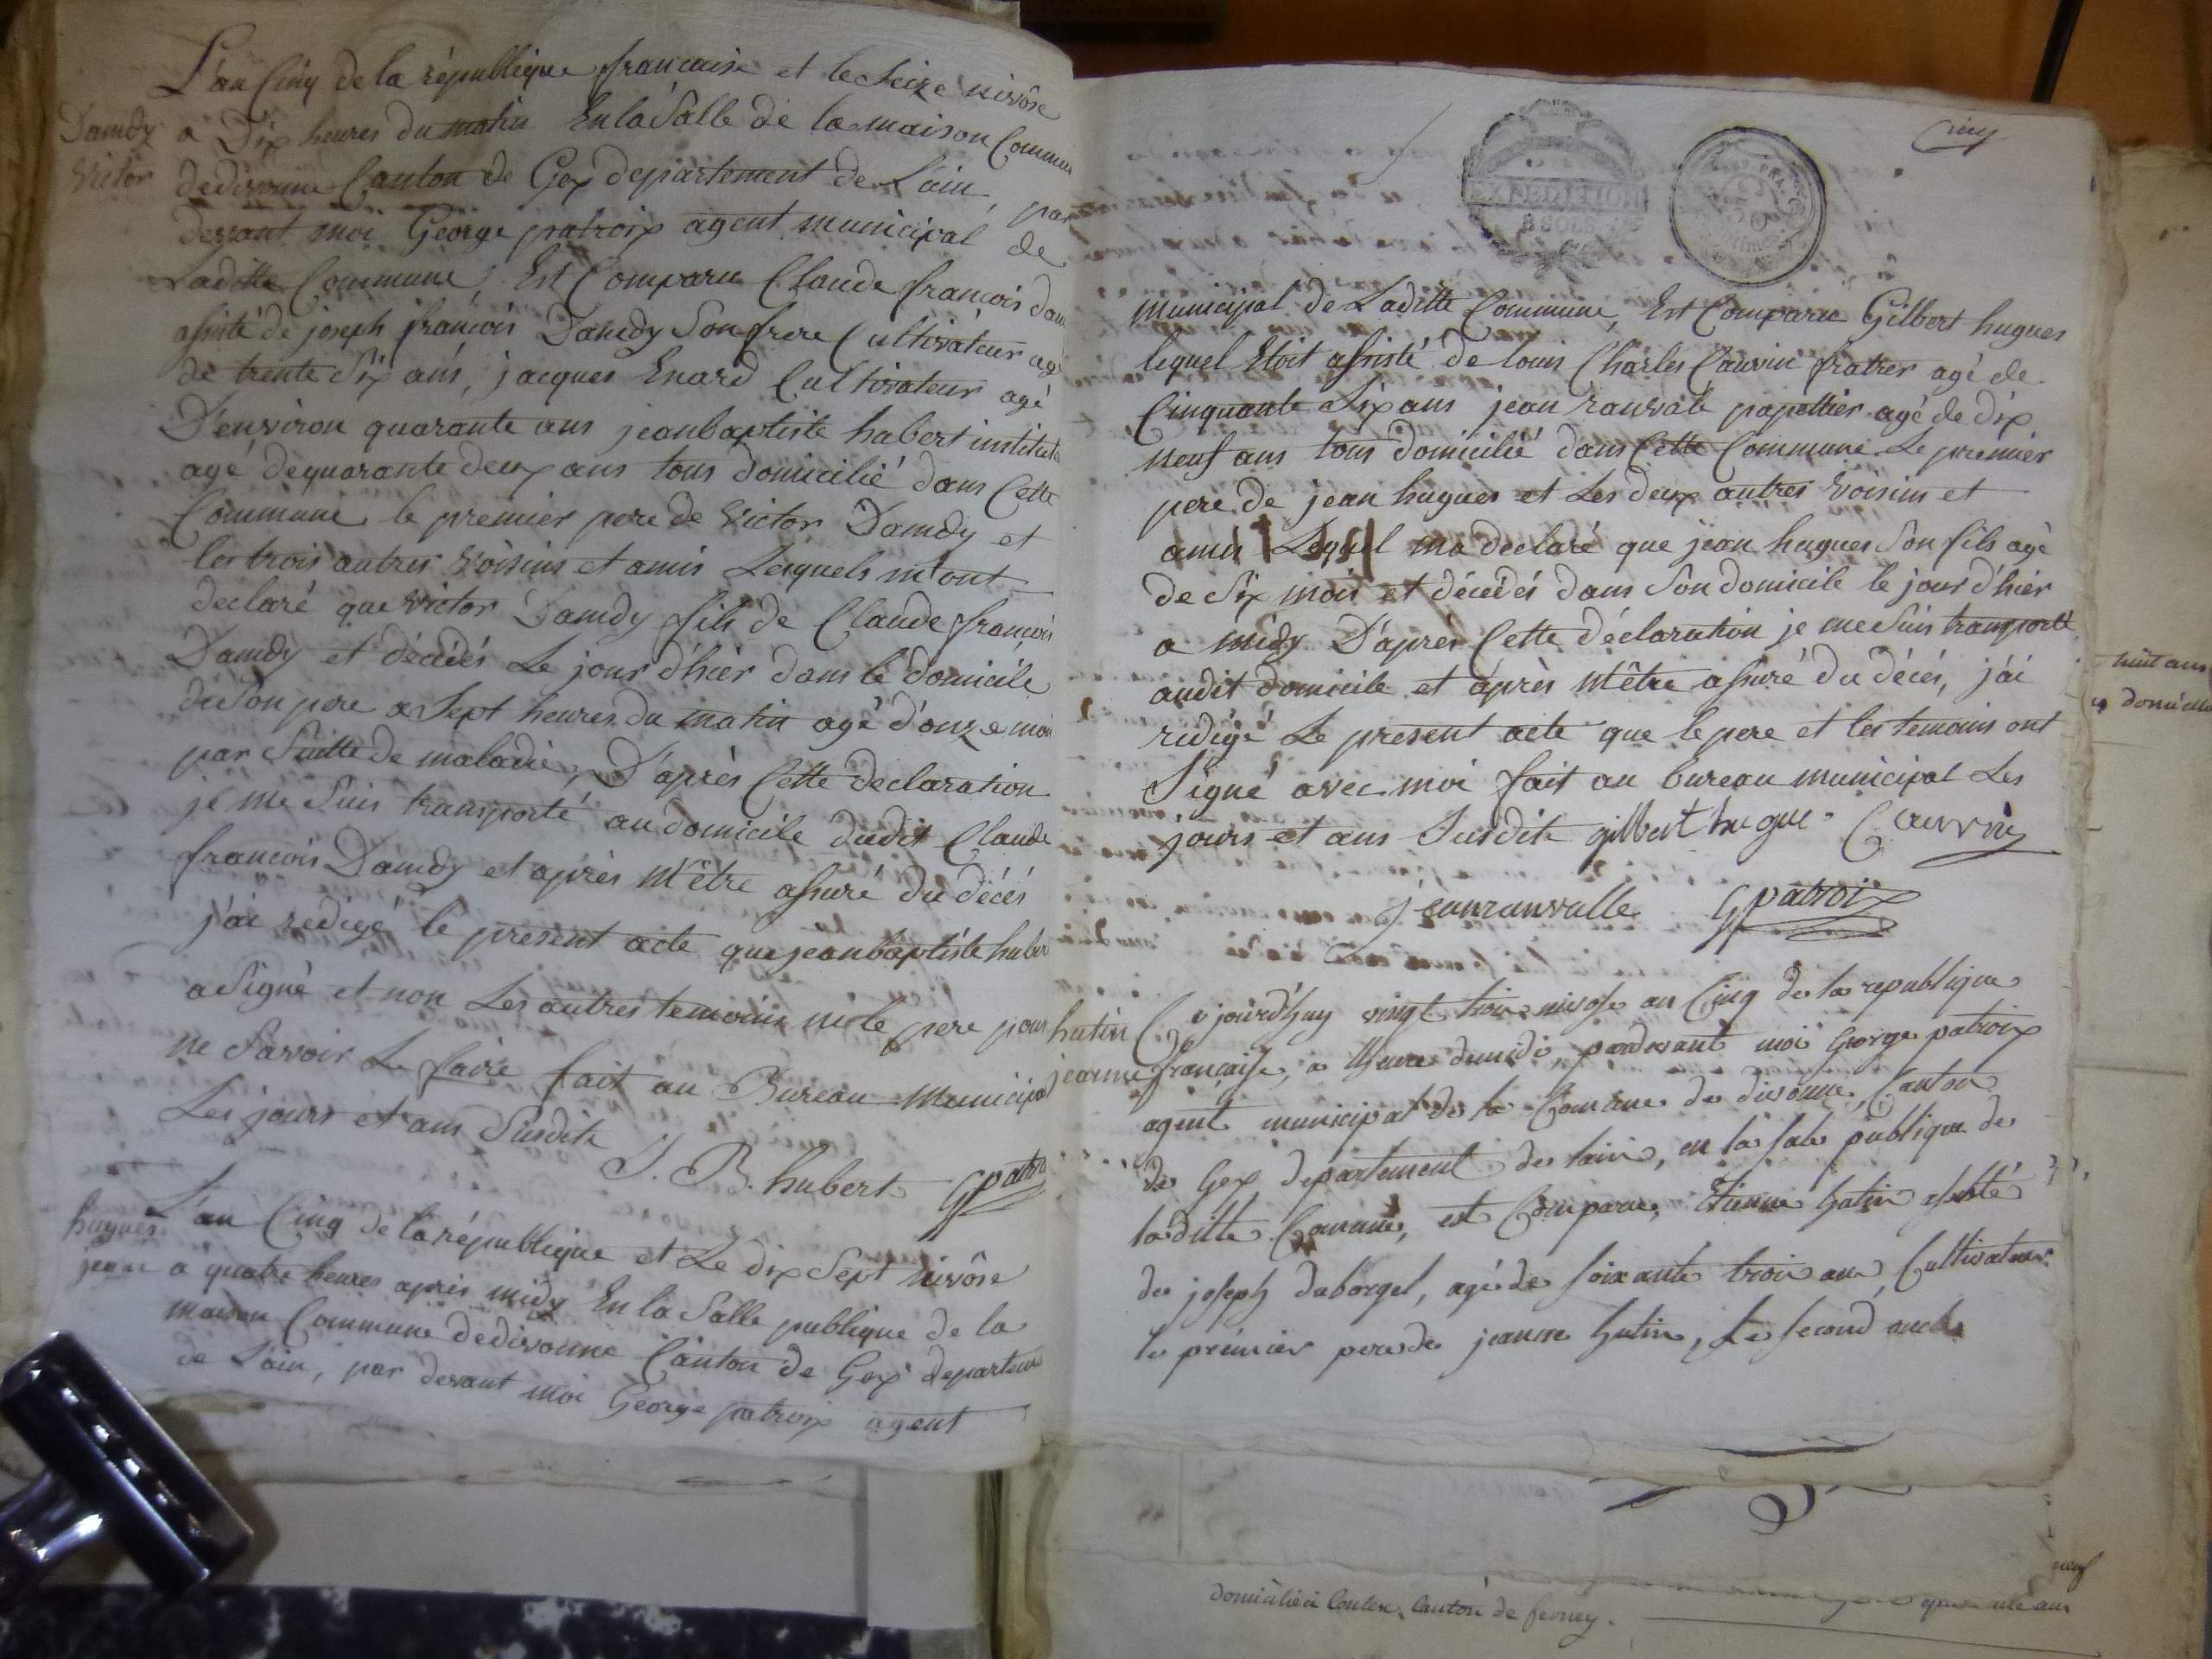 L'an Cinq de la république francaise et le Seize nivôse
Damdy
Victor
a Dix heures du matin En la Salle de la maison Commun
de divonne Canton de Gex departement de L'ain, par
devant moi George patroix agent municipal de
Laditte Commune, Est Comparu Claude francois dam
assisté de joseph francois Damdy Son frere Cultivateur agé
de trente Six ans, jacques Enard Cultivateur agé
D'environ quarante ans jean baptiste hubert institut
agé de quarante deux ans tous domicilié dans Cette
Commune, le premier pere de Victor Damdy et
les trois autres Voisins et amis Lesquels m'ont
declaré que Victor Damdy fils de Claude francois
Damdy et décédés Le jour d'hier dans le domicile
de Son pere a Sept heures du matin agé d'onze moi
par Suitte de maladie, D'après Cette declaration
je me Suis transporté au domicile dudit Claude
francois Damdy et après M'être assuré du décés
j'ai redigé le present acte que jean baptiste huber
a Signé et non Les autres temoins ni le pere pour
ne Savoir Le faire fait au Bureau Municipal
Les jours et ans Susdits
J. B. hubert Gpatro
hugues
jean
L'an Cinq de la république et Le dix Sept nivôse
a quatre heures après midy En la Salle publique de la
maison Commune de divonne Canton de Gex departem
de L'ain, par devant moi George patroix agent
Cinq
EXPEDITION
8 SOLS
municipal de Laditte Commune, Est Comparu Gilbert hugues
lequel Etoit assisté de louis Charles Cauvin fratrer agé de
Cinquante Six ans jean ranvale papettier agé de dix
neuf ans tous domicilié dans Cette Commune Le premier
pere de jean hugues et Les deux autres Voisins et
amis Lequel ma declaré que jean hugues Son fils agé
de Six mois et décédés dans Son domicile le jour d'hier
a midy D'après Cette déclaration je me Suis transporté
audit domicile et après M'être assuré du décés, j'ai
redigé Le present acte que le pere et les temoins ont
Signé avec moi fait au bureau municipal Les
jours et ans Susdits gilbert hugue Cauvin
jeanranvalle Gpatroix
hutin
jeanne
Ce jourd'huy vingt trois nivose an Cinq de la republique
française, a lheure de midi, pardevant moi George patroix
agent municipal de la Comune de divonne, Canton
de Gex departement de lain, en la sale publique de
laditte Comune, est Comparu, Etienne hutin assisté
de joseph duborgel, agé de soixante trois ans, Cultivateur
le premier pere de jeanne hutin, Le second oncle
huit ans
domicilié
neuf
domicilié à Conlex, Canton de ferney.